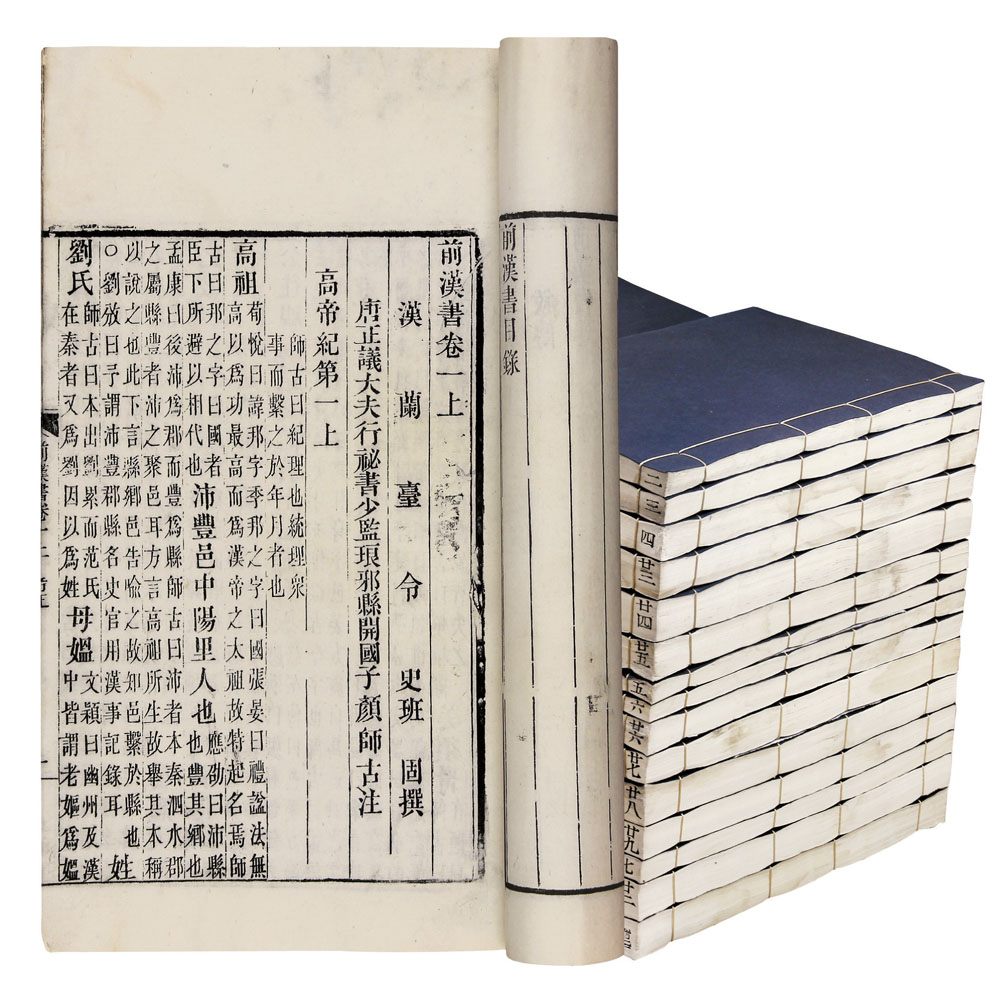 前漢書目錄
前漢書卷一上
漢蘭臺令史班固撰
唐正議大夫行祕書少監琅邪縣開國子顏師古注
高帝紀第一上
師古曰紀理也統理衆
事而繫之於年月者也
高祖荀悅曰諱邦字季邦之字曰國張晏曰禮諡法無
高以爲功最高而爲漢帝之太祖故特起名焉師
古曰邦之字曰國者
臣下所避以相代也沛豐邑中陽里人也應劭曰沛縣
也豐其鄉也
孟康曰後沛爲郡而豐爲縣師古曰沛者本秦泗水郡
之屬縣豐者沛之聚邑耳方言高祖所生故舉其本稱
以說之也此下言縣鄉邑告喻之故知邑繫於縣也
○劉攽曰予謂沛豐郡縣名史官用漢事記錄耳姓
劉氏師古曰本出劉累而范氏
在秦者又爲劉因以爲姓母媼文穎曰幽州及漢
中皆謂老嫗爲媼
前漢書卷一上
二
三
四
廿三
廿四
廿五
五六
廿六
廿七
廿八
廿九
七